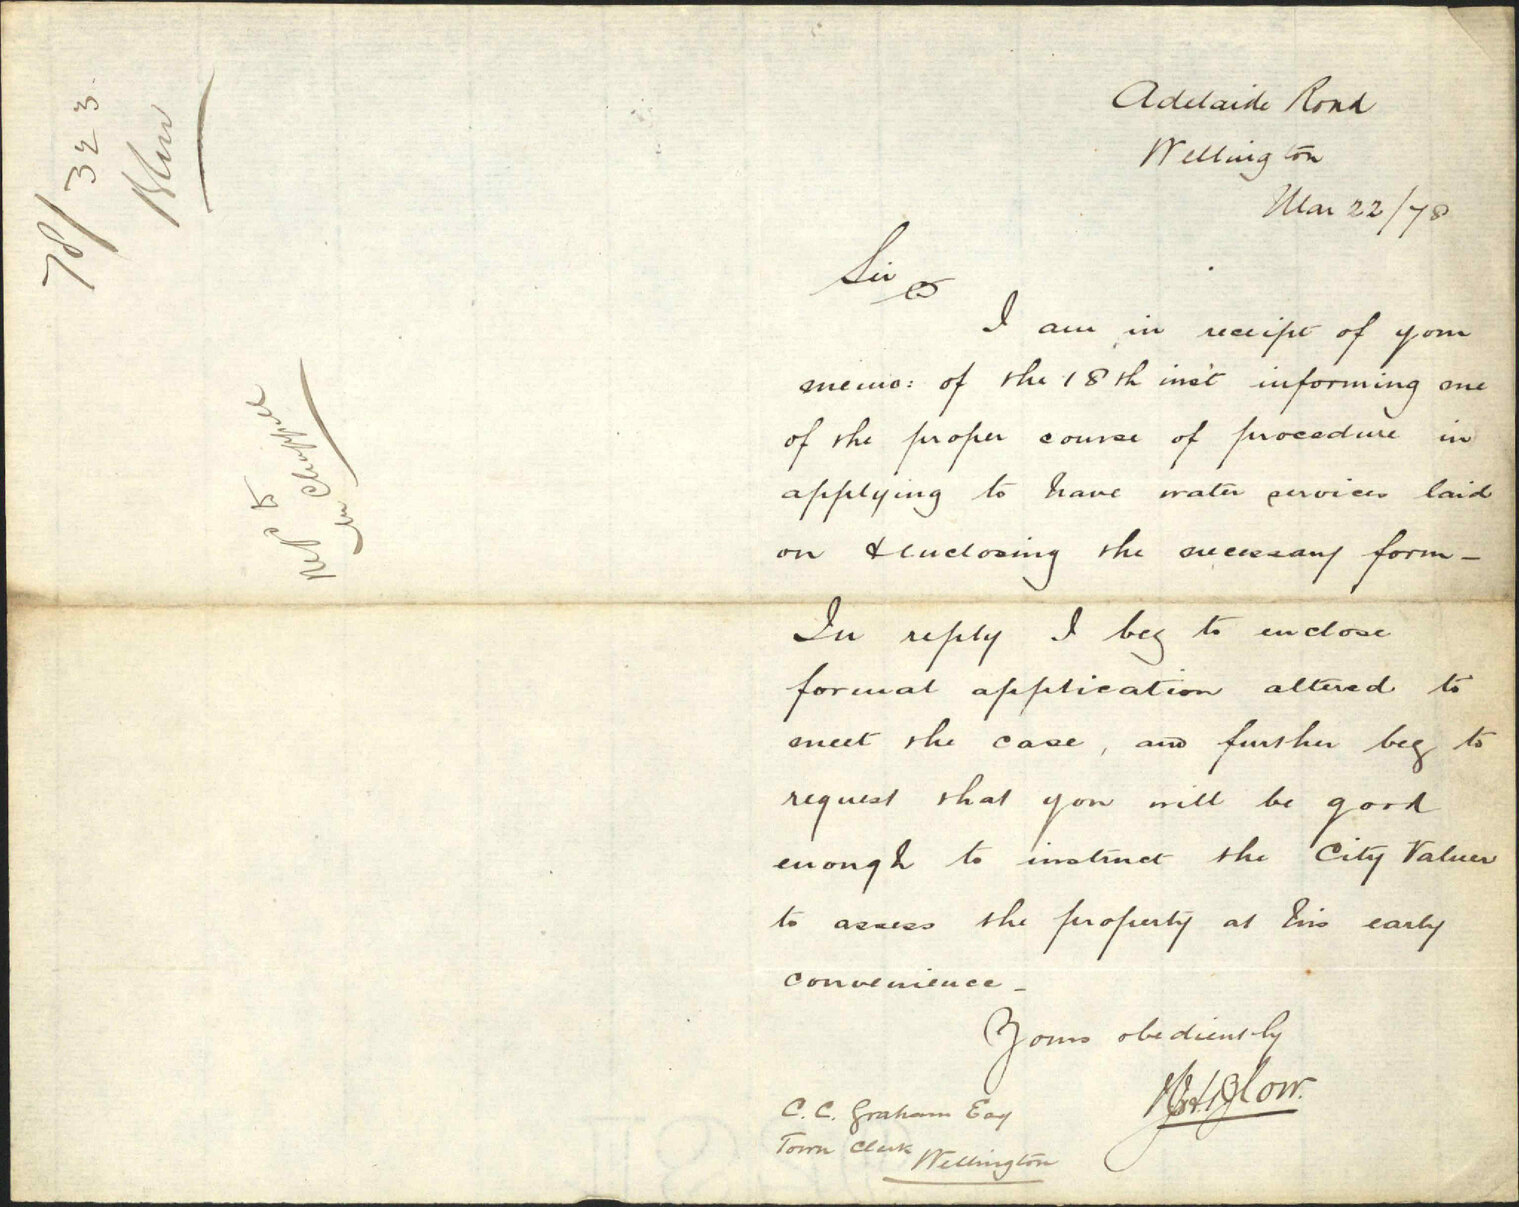 78/323
Adelaide Road
Wellington
Mar 22/78
Sir
I am in receipt of your
memo: of the 18th inst informing me
of the proper course of procedure in
applying to have water services laid
on & enclosing the necessary form -
In reply I beg to enclose
formal application altered to
meet the case, and further beg to
request that you will be good
enough to instruct the City Valuer
to assess the property at his early
convenience -
Yours obediently
C. C. Graham Esq
Town Clerk
Wellington